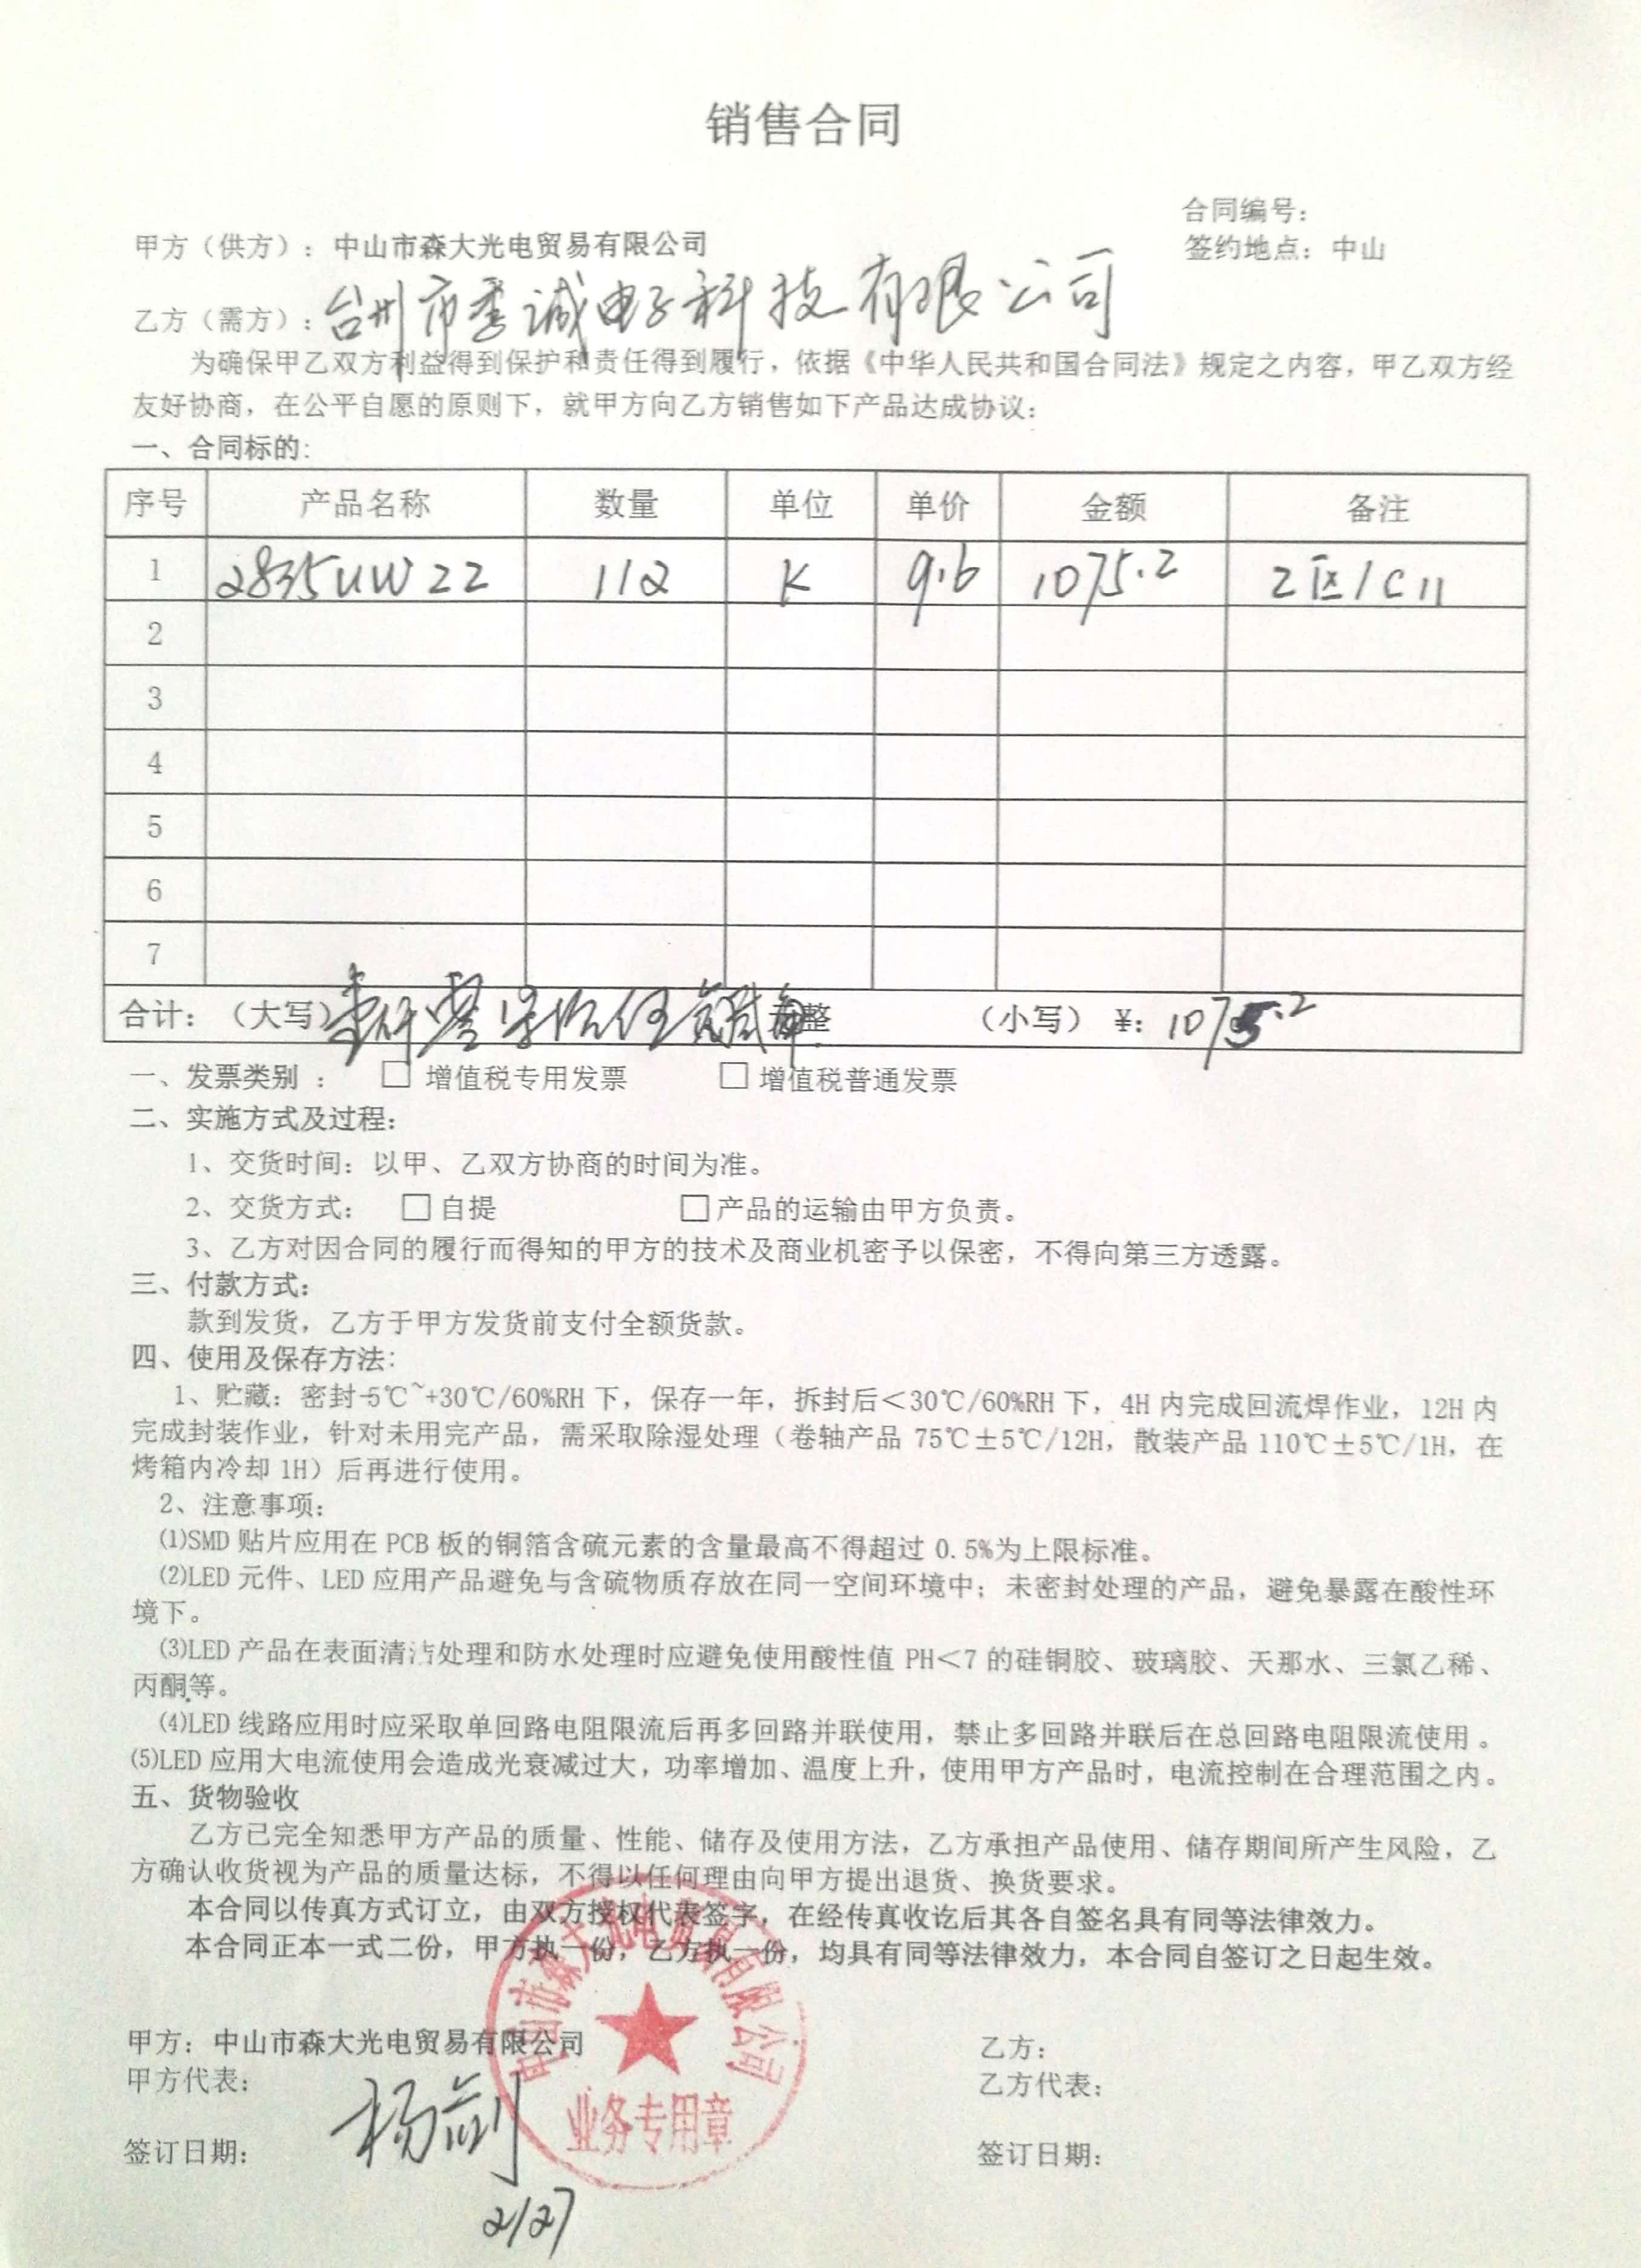 销售合同
合同编号：
甲方（供方）：中山市森大光电贸易有限公司
签约地点：中山
乙方（需方）：台州市季诚电子科技有限公司
为确保甲乙双方利益得到保护和责任得到履行，依据《中华人民共和国合同法》规定之内容，甲乙双方经
友好协商，在公平自愿的原则下，就甲方向乙方销售如下产品达成协议：
一、合同标的：
序号 产品名称 数量 单位 单价 金额 备注
1 2835UW22 112 K 9.6 1075.2 2区/C11
2
3
4
5
6
7
合计：（大写）壹仟零 元整 （小写）¥：1075.2
一、发票类别 ： □ 增值税专用发票 □ 增值税普通发票
二、实施方式及过程：
1、交货时间：以甲、乙双方协商的时间为准。
2、交货方式： □ 自提 □产品的运输由甲方负责。
3、乙方对因合同的履行而得知的甲方的技术及商业机密予以保密，不得向第三方透露。
三、付款方式：
款到发货，乙方于甲方发货前支付全额货款。
四、使用及保存方法：
1、贮藏：密封-5℃~+30℃/60%RH 下，保存一年，拆封后＜30℃/60%RH 下，4H 内完成回流焊作业，12H 内
完成封装作业，针对未用完产品，需采取除湿处理（卷轴产品 75℃±5℃/12H，散装产品 110℃±5℃/1H，在
烤箱内冷却 1H）后再进行使用。
2、注意事项：
⑴SMD 贴片应用在 PCB 板的铜箔含硫元素的含量最高不得超过 0.5%为上限标准。
⑵LED 元件、LED 应用产品避免与含硫物质存放在同一空间环境中；未密封处理的产品，避免暴露在酸性环
境下。
⑶LED 产品在表面清洁处理和防水处理时应避免使用酸性值 PH＜7 的硅铜胶、玻璃胶、天那水、三氯乙稀、
丙酮等。
⑷LED 线路应用时应采取单回路电阻限流后再多回路并联使用，禁止多回路并联后在总回路电阻限流使用 。
⑸LED 应用大电流使用会造成光衰减过大，功率增加、温度上升，使用甲方产品时，电流控制在合理范围之内。
五、货物验收
乙方已完全知悉甲方产品的质量、性能、储存及使用方法，乙方承担产品使用、储存期间所产生风险，乙
方确认收货视为产品的质量达标，不得以任何理由向甲方提出退货、换货要求。
本合同以传真方式订立，由双方授权代表签字，在经传真收讫后其各自签名具有同等法律效力。
本合同正本一式二份，甲方执一份，乙方执一份，均具有同等法律效力，本合同自签订之日起生效。
中山市森大光电贸易有限公司
业务专用章
甲方：中山市森大光电贸易有限公司
乙方：
甲方代表：杨剑
乙方代表：
签订日期：2/27
签订日期：